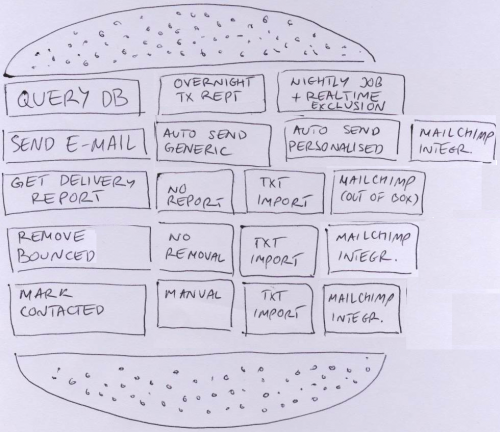 QUERY DB
OVERNIGHT
TX REPT
NIGHTLY JOB
+ REALTIME
EXCLUSION
SEND E-MAIL
AUTO SEND
GENERIC
AUTO SEND
PERSONALISED
MAILCHIMP
INTEGR.
GET DELIVERY
REPORT
NO
REPORT
TXT
IMPORT
MAILCHIMP
(OUT OF BOX)
REMOVE
BOUNCED
NO
REMOVAL
TXT
IMPORT
MAILCHIMP
INTEGR.
MARK
CONTACTED
MANUAL
TXT
IMPORT
MAILCHIMP
INTEGR.